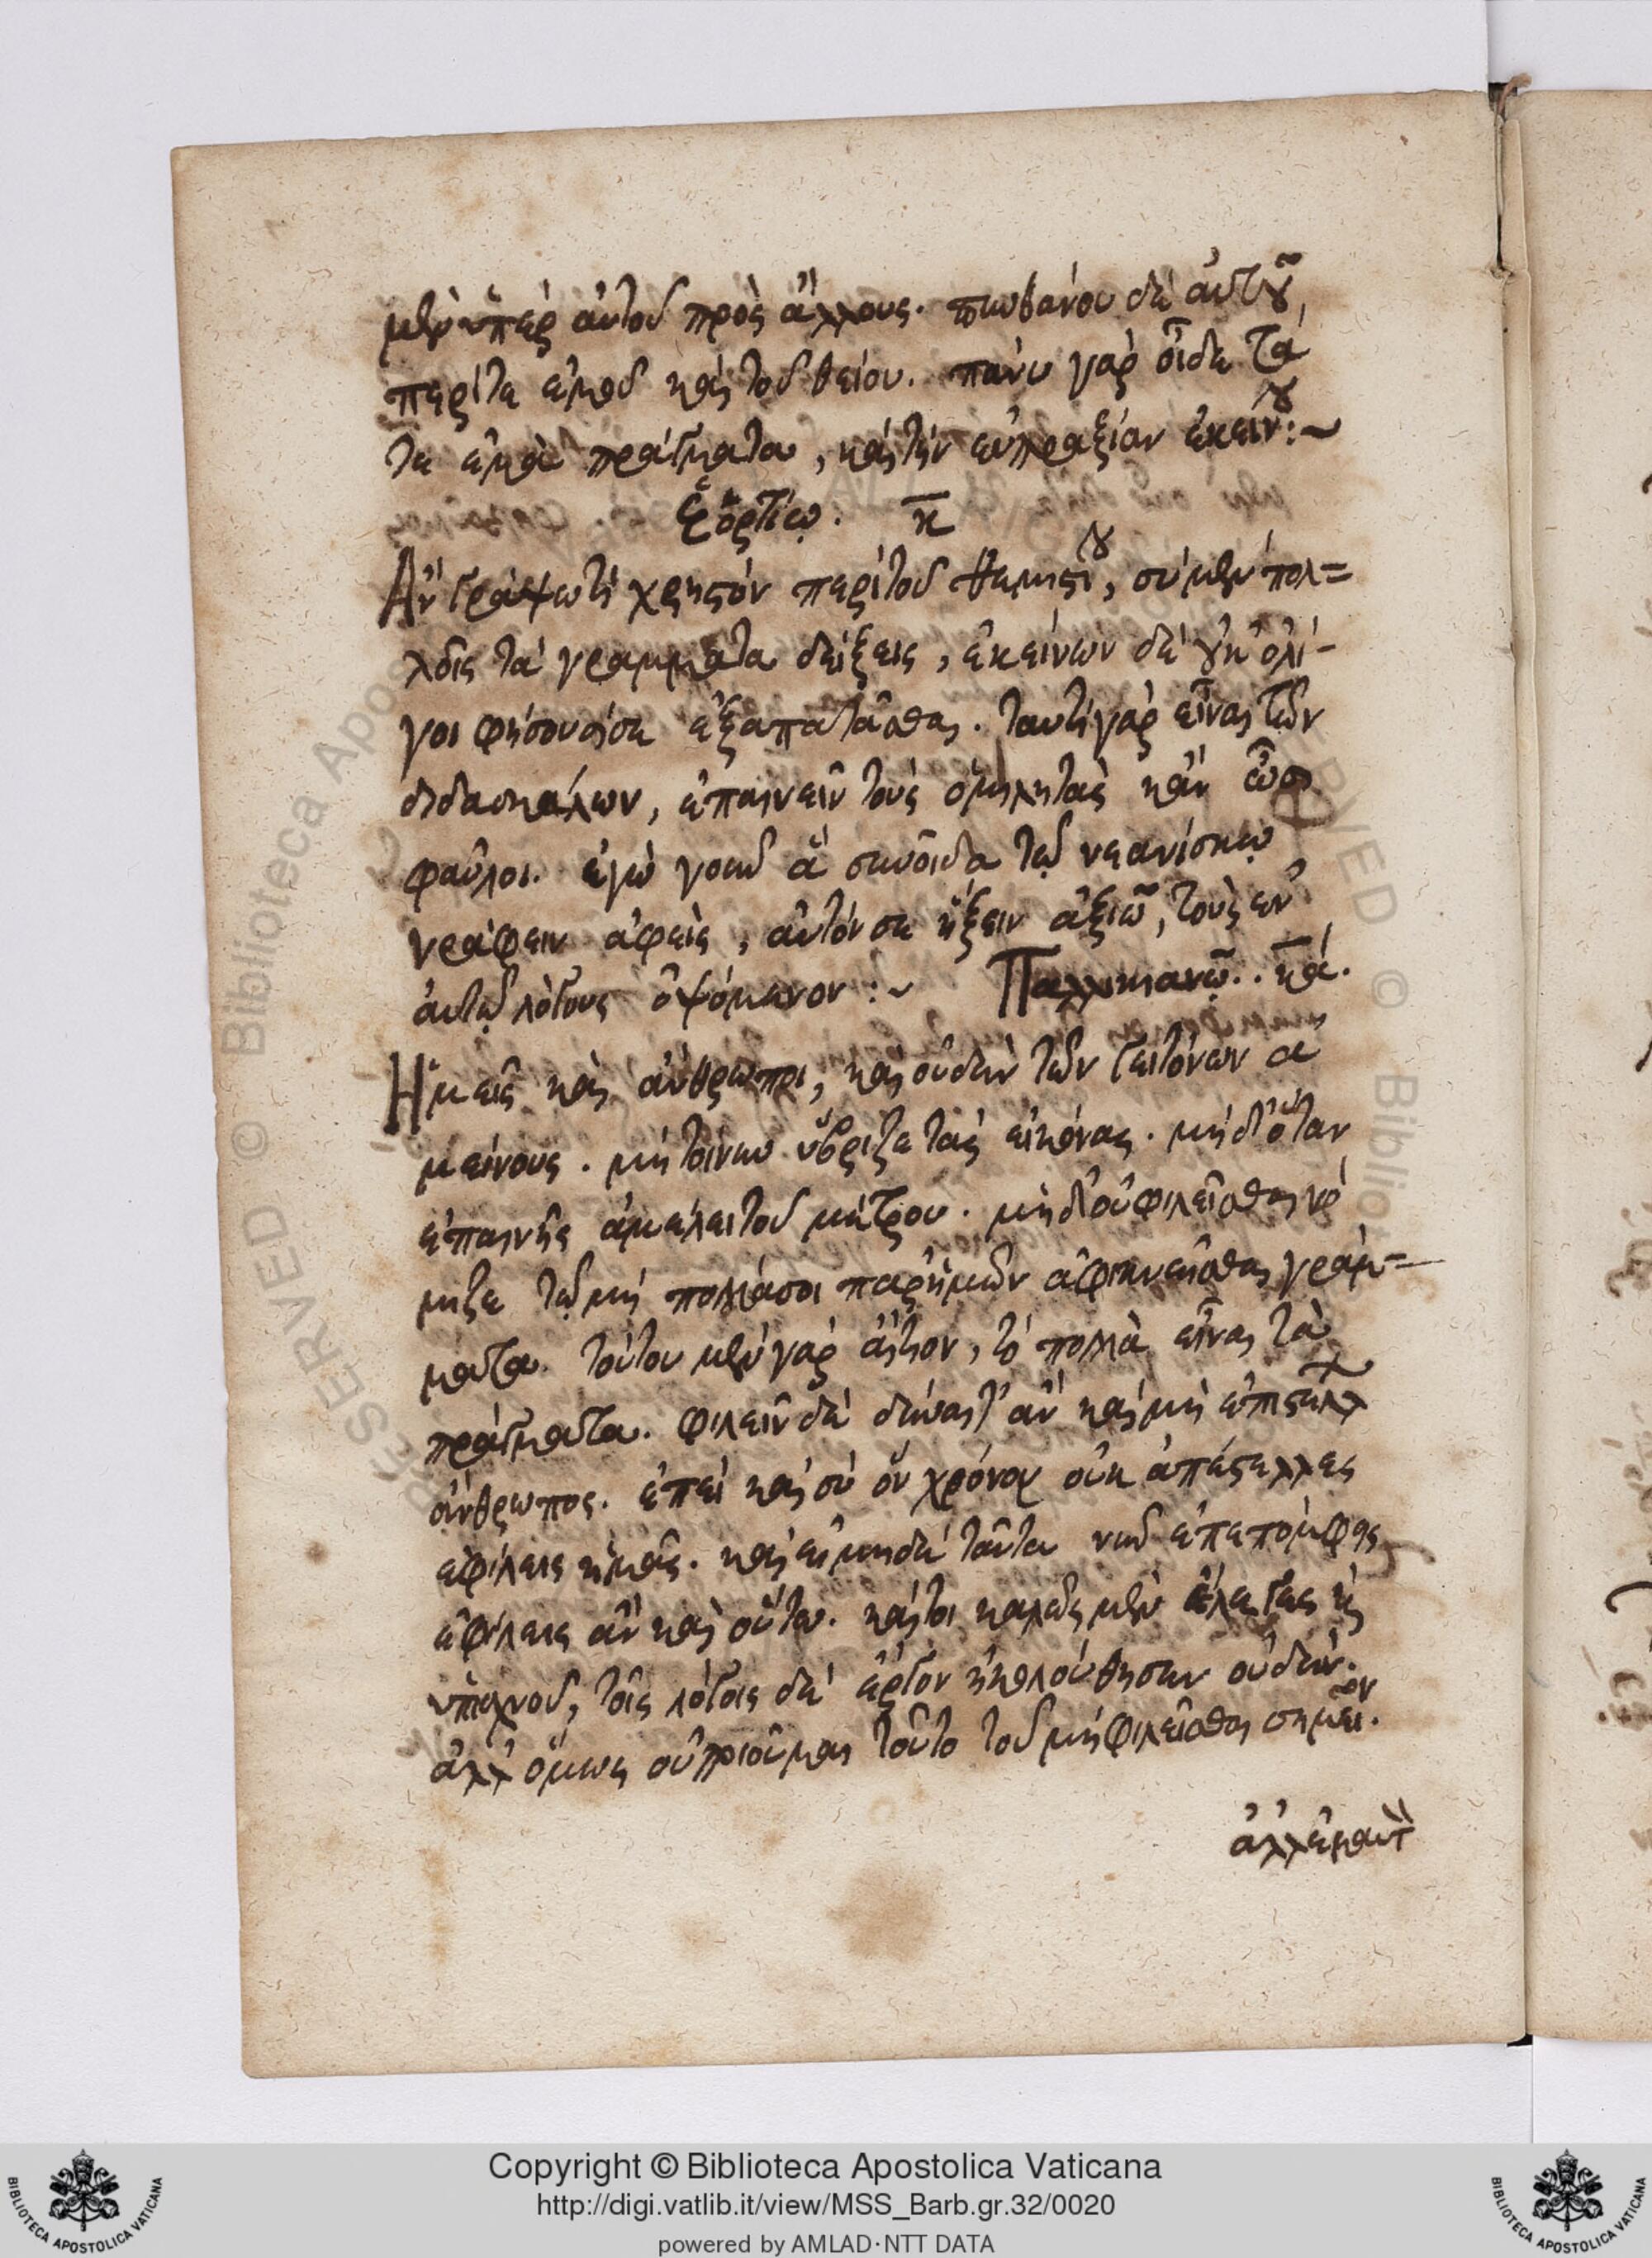 μὲν ὑπὲρ αὐτοῦ πρὸς ἄλλους. πυνθάνου δὲ αὐτοῦ
περί τε ἐμοῦ καὶ τοῦ θείου. πάνυ γὰρ οἶδε τά
τε ἐμὰ πράγματα, καὶ τὴν εὐπραξίαν ἐκείνου:~
Ἑορτίῳ. κ
Ἂν γράψω τι χρηστὸν περὶ τοῦ Θεμιστίου, σὺ μὲν πολ=
λοῖς τὰ γράμματα δείξεις, ἐκείνων δὲ οὐκ ὀλί-
γοι φήσουσί σε ἐξαπατᾶσθαι. ταυτὶ γὰρ εἶναι τῶν
διδασκάλων, ἐπαινεῖν τοὺς ὁμιλητὰς κἂν ὦσι
φαῦλοι. ἐγὼ γοῦν ἃ σύνοιδα τῷ νεανίσκῳ
γράφειν ἀφεὶς, αὐτόν σε ἥξειν ἀξιῶ, τοὺς ἐν
αὐτῷ λόγους ὀψόμενον:~ Παλλικιανῷ.. κά.
Ἡμεῖς καὶ ἄνθρωποι, καὶ οὐδὲν τῶν γειτόνων ἀ
μείνους. μὴ τοίνυν ὕβριζε τὰς εἰκόνας. μηδ' ὅταν
ἐπαινῇς ἀμέλει τοῦ μέτρου. μηδ' οὐ φιλεῖσθαι νό
μιζε τῷ μὴ πολλάσοι παρ' ἡμῶν ἀφικνεῖσθαι γράμ=
ματα. τούτου μὲν γὰρ αἴτιον, τὸ πολλὰ εἶναι τὰ
πράγματα. φιλεῖν δὲ δύναιτ' ἂν καὶ μὴ ἐπιστέλλων
ἄνθρωπος. ἐπεὶ καὶ σὺ ὃν χρόνον οὐκ ἀπέστελλες
ἐφίλεις ἡμᾶς. καὶ εἰ μηδὲ ταῦτα νῦν ἐπεπόμφεις
ἐφίλεις ἂν καὶ οὕτω. καίτοι καλῶς μὲν ἔλεγες καὶ
ὑπισχνοῦ, τοῖς λόγοις δὲ ἔργον ἠκολούθησεν οὐδέν.
ἀλλ' ὅμως οὐ ποιοῦμαι τοῦτο τοῦ μὴ φιλεῖσθαι σημεῖον.
ἀλλ' ἐμαυτ
Copyright © Biblioteca Apostolica Vaticana
http://digi.vatlib.it/view/MSS_Barb.gr.32/0020
powered by AMLAD·NTT DATA